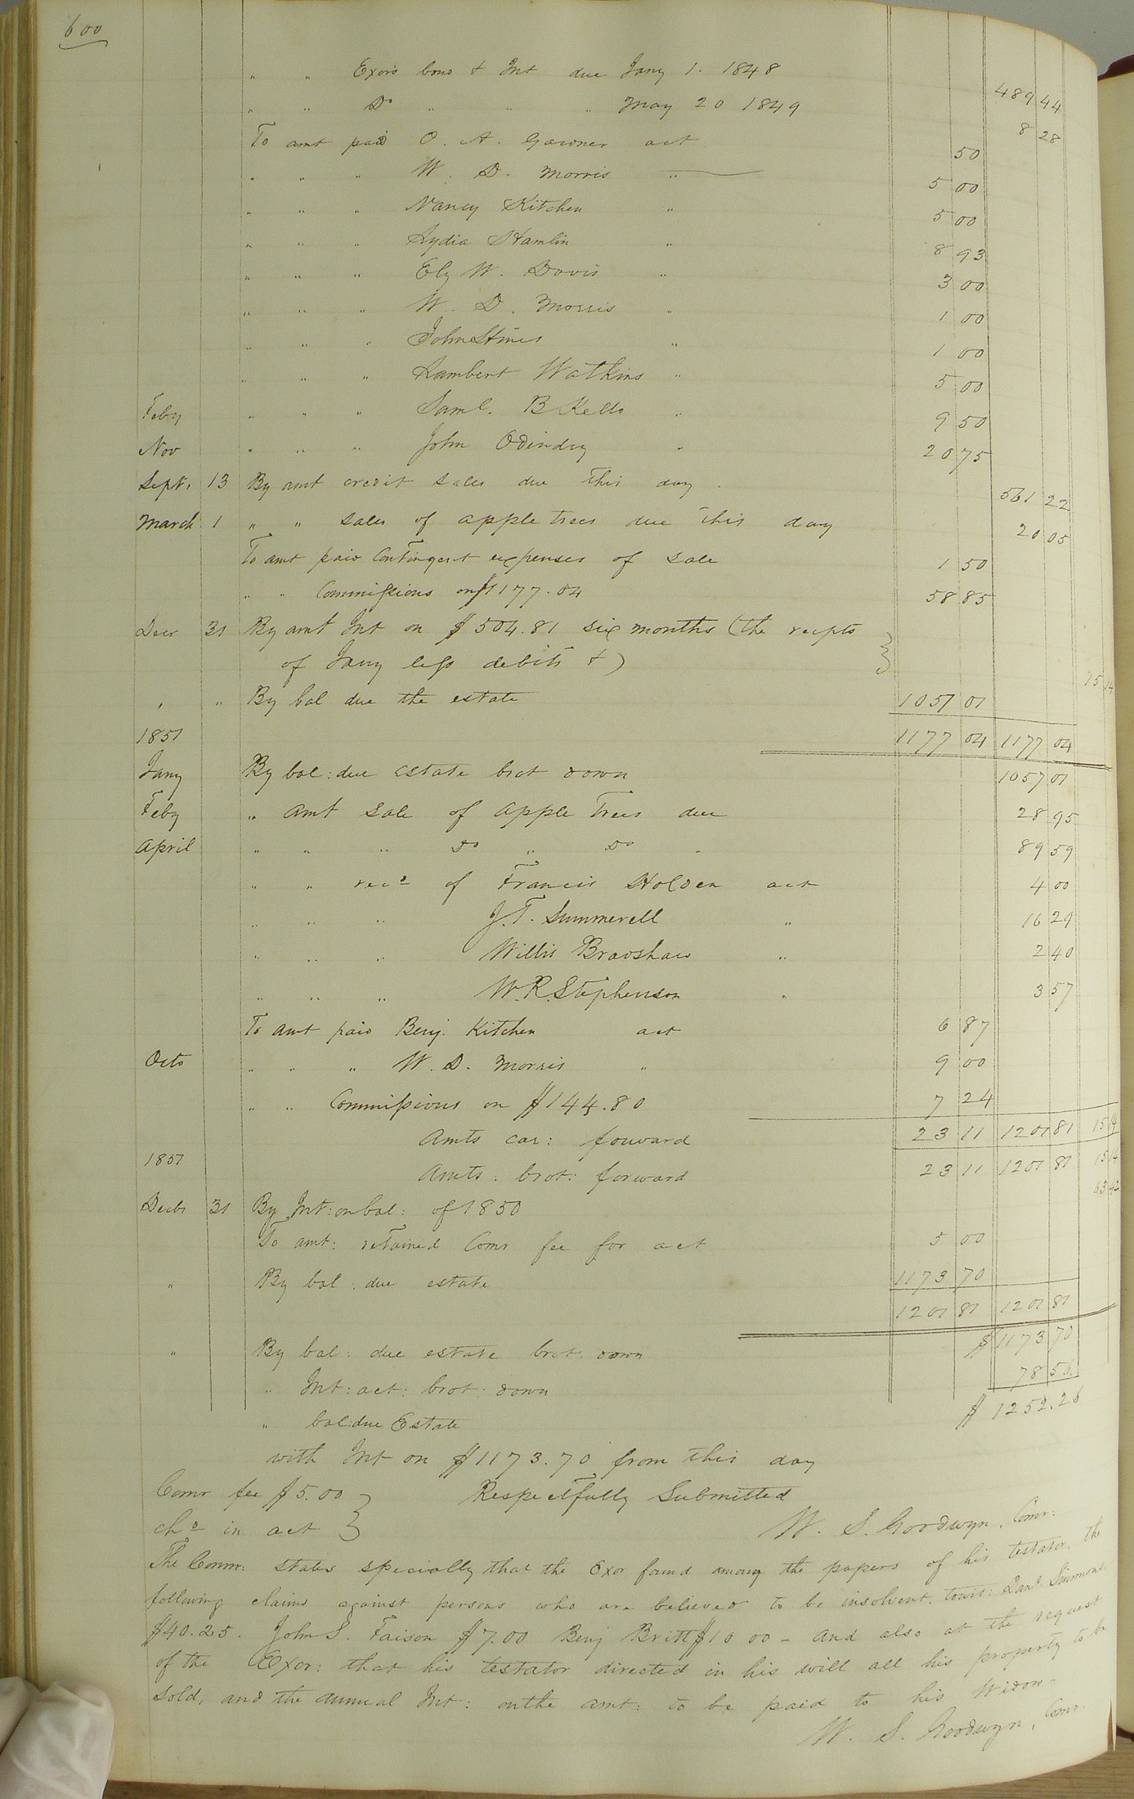 600
" " Exors bond & Int due Jany 1. 1848 489 44
" " Do " " " May 20 1849 8 28
To amt paid O. A. Gardner act 50
" " " W. D. Morris " 5 00
" " " Nancy Kitchen " 5 00
" " " Lydia Hamlin " 8 93
" " " Ely W. Davis " 3 00
" " " W. D. Morris " 1 00
" " " John Stines " 1 00
" " " Lambert Watkins " 5 00
Feby " " " Saml. B Kello " 9 50
Nov " " " John " 20 75
Sept. 13 By amt credit sales due this day . 561 22
March 1 " " sales of apple trees due this day 20 05
To amt paid Contingent expenses of sale 1 50
" " Commissions on $1177.04 58 85
Decr 31 By amt Int on $504.81 six months (the recpts
of Jany less debits &) 15 14
" " By bal due the estate 1057 01
1851 1177 04 1177 04
Jany By bal: due estate brot down 1057 01
Feby " amt sale of apple Trees due 28 95
April " " " Do " Do " 89 59
" " recd of Francis Holden act 4 00
" " " J. T. Summerell " 16 29
" " " Willis Bradshaw " 2 40
" " " W. R. Stephenson " 3 57
To amt paid Benj. Kitchen act 6 87
Octo " " " W. D. Morris " 9 00
" " Commissions on $144.80 7 24
Amts car: forward 23 11 1201 81 15 14
1851 Amts. brot: forward 23 11 1201 81 15 14
Decbr 31 By Int: on bal: of 1850 63 42
To amt: retained Comr fee for act 5 00
" By bal: due estate 1173 70
1201 81 1201 81
" By bal: due estate brot: down $1173 70
" Int: act: brot: down 78 56
" bal: due Estate $1252.26
with Int on $1173.70 from this day
Comr fee $5.00 } Respectfully Submitted
chd in act } W. S. Goodwyn, Comr.
The Comr. states specially that the Exor found among the papers of his testator, the
following claims against persons who are believed to be insolvent. towit: Simmons
$40.25. John S. Faison $7.00 Benj Britt $10 00 - And also at the request
of the Exor: that his testator directed in his will all his property to be
sold, and the annual Int: on the amt: to be paid to his Widow-
W. S. Goodwyn, Comr.